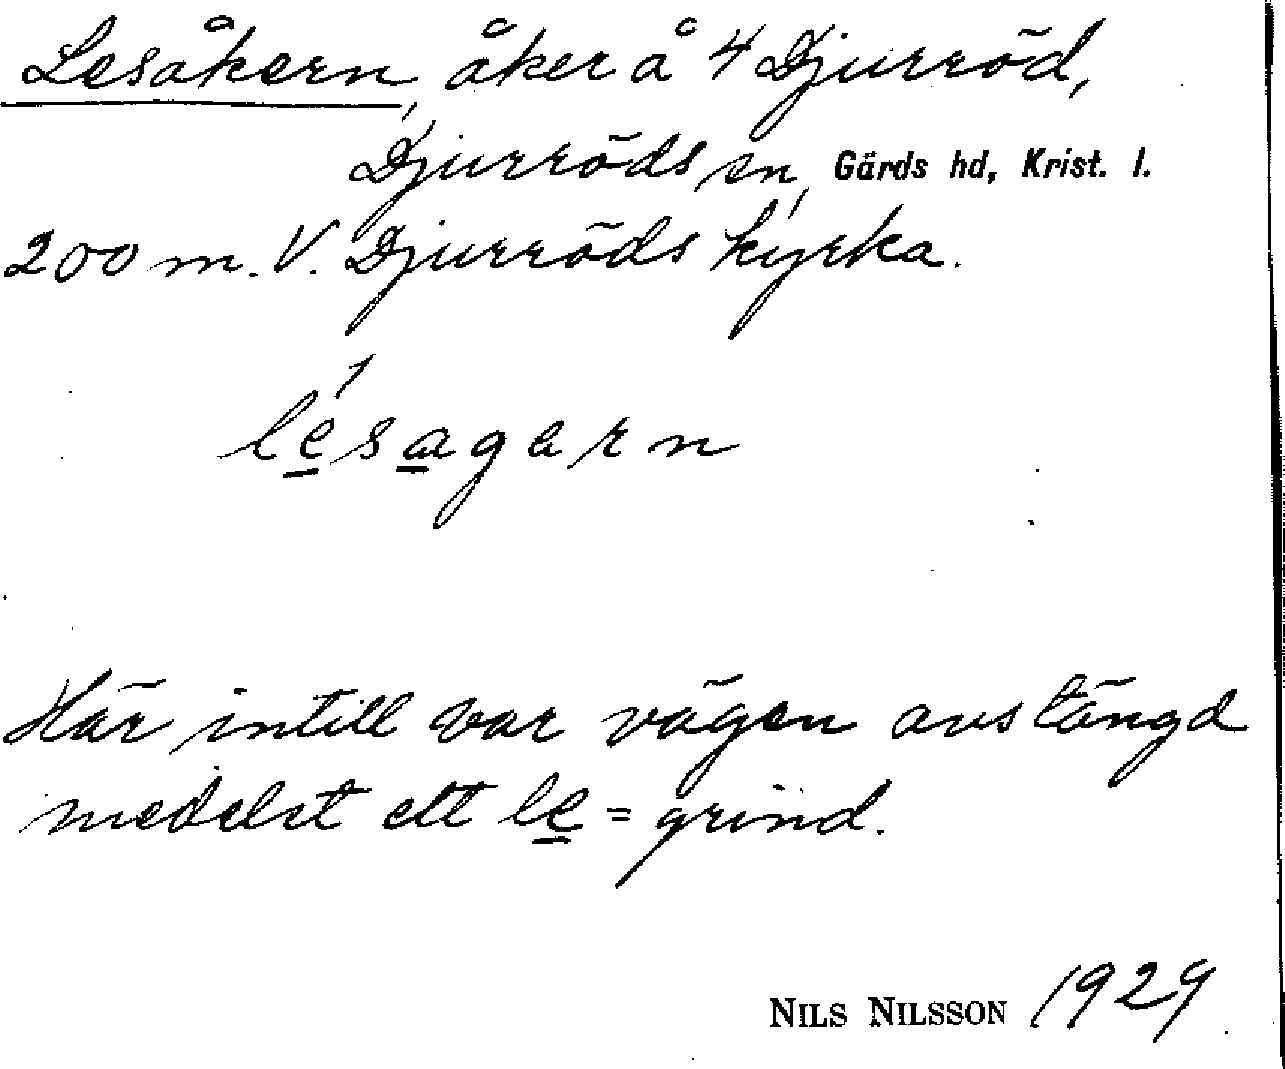 Lesåkern, åker å 4 Djurröd,
Djurröds sn, Gärds hd, Krist. l.
200 m. V. Djurröds kyrka.
lésagern
Här intill var vägen avstängd
medelst ett le = grind.
NILS NILSSON 1929